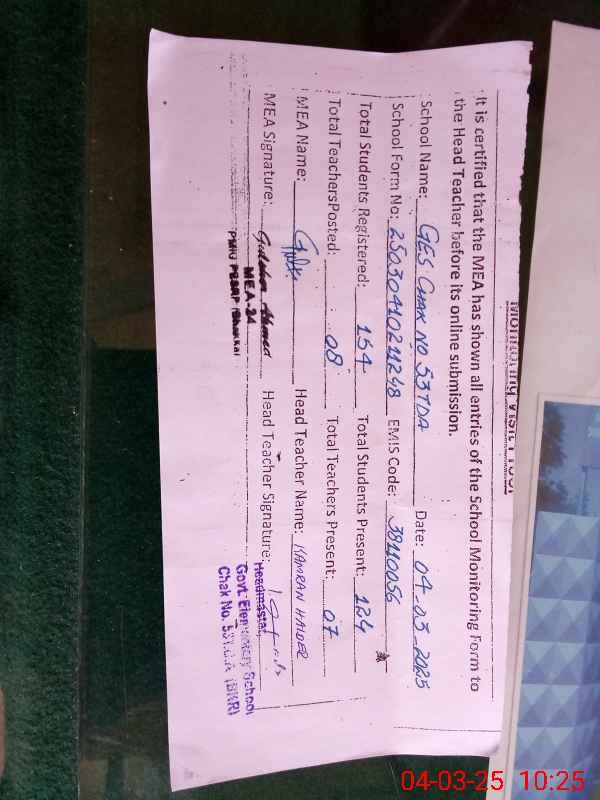 Monitoring Visit Proof
It is certified that the MEA has shown all entries of the School Monitoring Form to
the Head Teacher before its online submission.
School Name: GES Chak No 53TDA Date: 04-03-2025
School Form No: 25030410211248 EMIS Code: 38110056
Total Students Registered: 154 Total Students Present: 124
Total TeachersPosted: 08 Total Teachers Present: 07
MEA Name: Head Teacher Name: KAMRAN HAIDER
MEA Signature: Ahmed Head Teacher Signature:
MEA-34
PMIU PESRP Bhakkar
Headmaster
Govt. Elementary School
Chak No. (BKR)
04-03-25 10:25